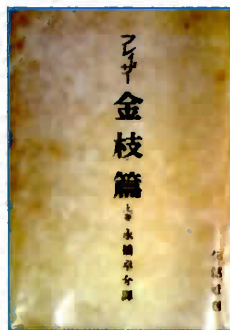 フレイザー
金枝篇
上巻
永橋卓介訳